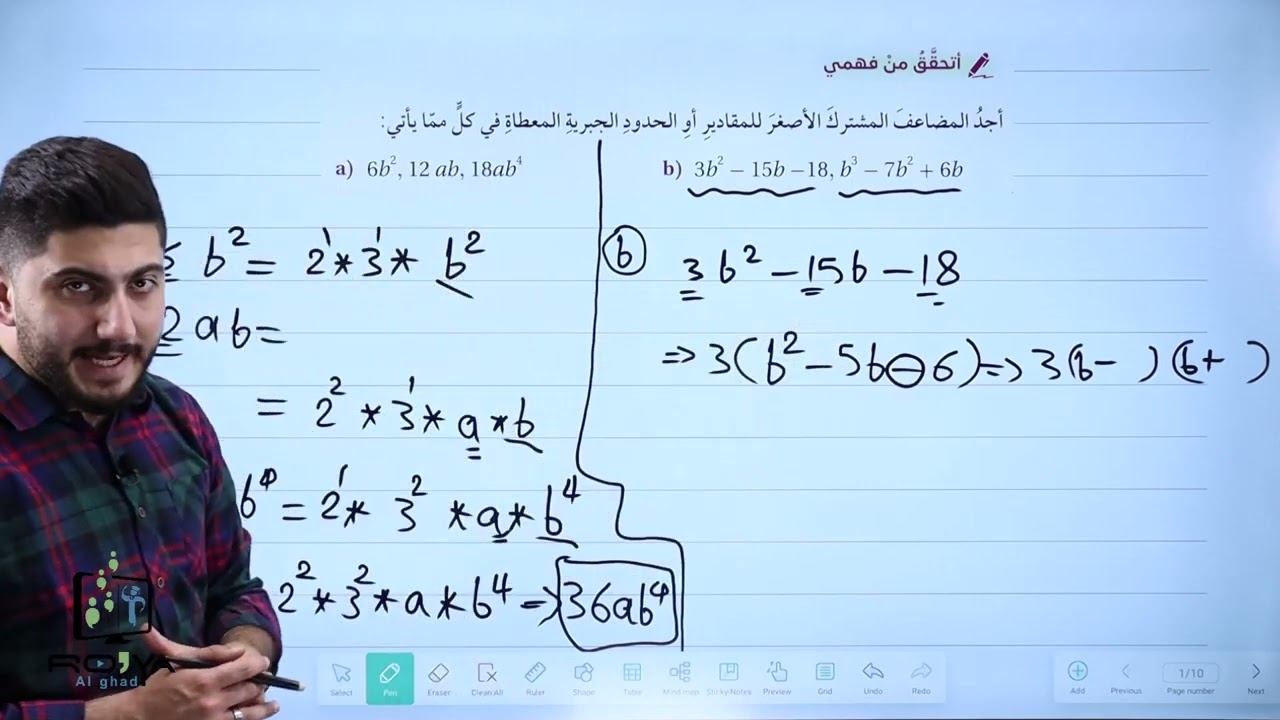 أتحقَّقُ منْ فهمي
أجدُ المضاعفَ المشتركَ الأصغرَ للمقاديرِ أوِ الحدودِ الجبريةِ المعطاةِ في كلٍّ ممّا يأتي:
a) 6b², 12 ab, 18ab⁴
b) 3b² − 15b −18, b³ − 7b² + 6b
b² = 2¹ * 3¹ * b²
2 ab =
= 2² * 3¹ * a * b
b⁴ = 2¹ * 3² * a * b⁴
2² * 3² * a * b⁴ => 36ab⁴
b
3b² − 15b − 18
=> 3(b² − 5b − 6) => 3(b − ) (b + )
ROYA
Al ghad
Select
Pen
Eraser
Clean All
Ruler
Shape
Table
Mind map
Sticky-Notes
Preview
Grid
Undo
Redo
Add
Previous
1/10
Page number
Next